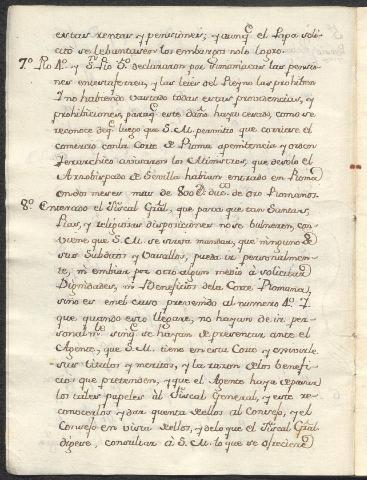 estas rentas, y pensiones; y aunq̃ el Papa soli-
citó se lebantasen los embargos no lo logro.
7.º Pio 4.º y S.ⁿ Pio 5.º declararon por simoniacas las pensio-
nes en estrangeros, y las leies del Reyno las prohiben
Y no habiendo vastado todas estas providencias, y
prohibiciones, paraq̃ este daño haya cesado, como se
reconoce deq̃ luego que S. M. permitio que corriese el
comercio conla Corte de Roma apenitencia y orden
Jerarchico avisaron los Ministros, que de solo el
Arzobispado de Sevilla habian entrado en Roma
en dos meses mas de 800 ducos de oro Romanos.
8.º Enterado el Fiscal Gral, que para que tan Santas,
Pias, y religiosas disposiciones no se bulneren, con-
viene que S. M. se sirva mandar, que ninguno de
sus Subditos y Vasallos, pueda ir personalmen-
te, ni embiar por otro algun medio á solicitar
Dignidades, ni Beneficios dela Corte Romana,
sino es enel caso prevenido al numero 4.º Y
que quando esto llegare, no hayan de ir per-
sonalm.te sinoq̃ se hayan de presentar ante el
Agente, que S. M. tiene en esta Corte y exivirle
sus titulos y meritos, y la razon delos benefi-
cios que pretenden, y que el Agente haya de pasar
los tales papeles al Fiscal General, y este re-
conocerlos y dar quenta dellos al Consejo, y el
Consejo en vista dellos, y delo que el Fiscal Gral
digere, consultar á S. M. lo que se ofreciere